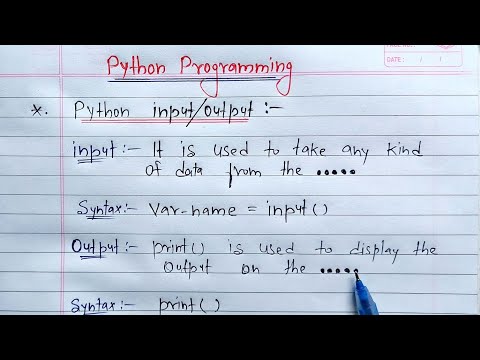 Python Programming
*. Python input/output :-
input :- It is used to take any kind
of data from the .....
Syntax:- Var-name = input()
Output:- print() is used to display the
output on the .....
Syntax:- print()
DATE: / /